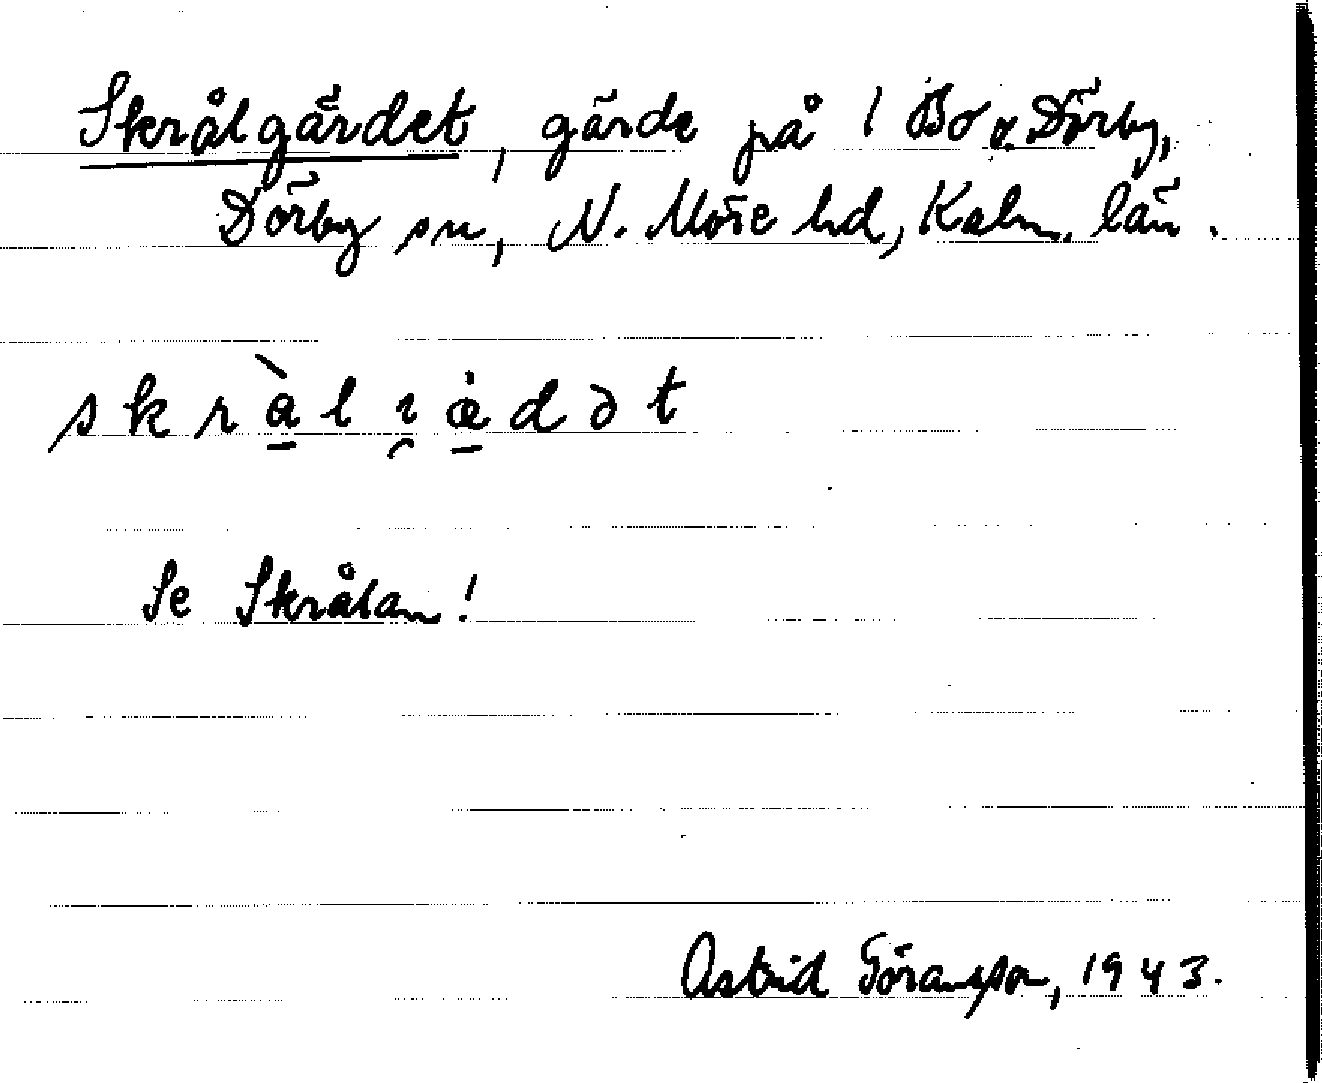 Skrålgärdet, gärde på 1 Bo o. Dörby,
Dörby sn, N. Möre hd, Kalm. län.
s k r à̱ l ı̯ æ̱̇ d ə t
Se Skrålan!
Astrid Göransson, 1943.